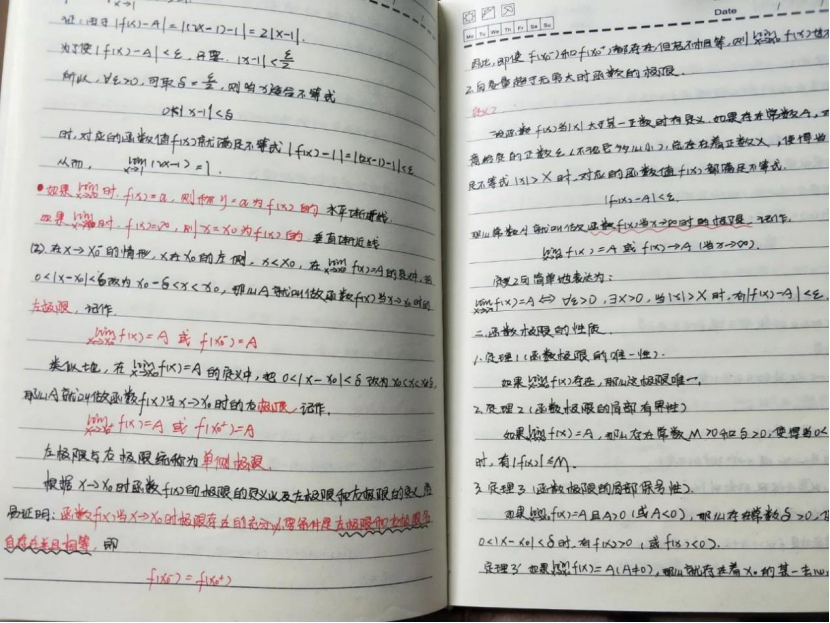 x→1
证：由于|f(x)-A|=|(2x-1)-1|=2|x-1|.
为了使|f(x)-A|<ε，只要，|x-1|<ε/2
所以，∀ε>0，可取δ=ε/2，则当x适合不等式
0<|x-1|<δ
时，对应的函数值f(x)就满足不等式|f(x)-1|=|(2x-1)-1|<ε
从而，lim(2x-1)=1.
•如果lim时，f(x)=a，则称y=a为f(x)的 水平渐近线
如果lim时，f(x)=∞，则x=x₀为f(x)的 垂直渐近线
(2).在x→x₀⁻的情形，x在x₀的左侧，x<x₀，在lim f(x)=A的定义中，把
0<|x-x₀|<δ改为x₀-δ<x<x₀，那么A就叫做函数f(x)当x→x₀时的
左极限，记作.
lim f(x)=A 或 f(x₀⁻)=A
类似地，在lim f(x)=A的定义中，把0<|x-x₀|<δ改为x₀<x<x₀+δ，
那么A就叫做函数f(x)当x→x₀时的右极限，记作.
lim f(x)=A 或 f(x₀⁺)=A
左极限与右极限统称为单侧极限.
根据x→x₀时函数f(x)的极限的定义以及左极限和右极限的定义，容
易证明：函数f(x)当x→x₀时极限存在的充分必要条件是左极限和右极限各
自存在并且相等，即
f(x₀⁻)=f(x₀⁺)
Date
Mo Tu We Th Fr Sa Su
因此，即使f(x₀⁻)和f(x₀⁺)都存在，但若不相等，则lim f(x)也不
2.自变量趋于无穷大时函数的极限.
定义2
设函数f(x)当|x|大于某一正数时有定义.如果存在常数A，
意给定的正数ε(不论它多么小)，总存在着正数X，使得当
足不等式|x|>X时，对应的函数值f(x)都满足不等式.
|f(x)-A|<ε.
那么常数A就叫做函数f(x)当x→∞时的极限，记作.
lim f(x)=A 或 f(x)→A (当x→∞).
定义2可简单地表达为：
lim f(x)=A ⇔ ∀ε>0，∃X>0，当|x|>X时，有|f(x)-A|<ε.
二.函数极限的性质.
1.定理1(函数极限的唯一性).
如果lim f(x)存在，那么这极限唯一.
2.定理2(函数极限的局部有界性)
如果lim f(x)=A，那么存在常数M>0和δ>0，使得当0<
时，有|f(x)|≤M.
3.定理3(函数极限的局部保号性).
如果lim f(x)=A且A>0(或A<0)，那么存在常数δ>0，
0<|x-x₀|<δ时，有f(x)>0(或f(x)<0).
定理3′ 如果lim f(x)=A(A≠0)，那么就存在着x₀的某一去心